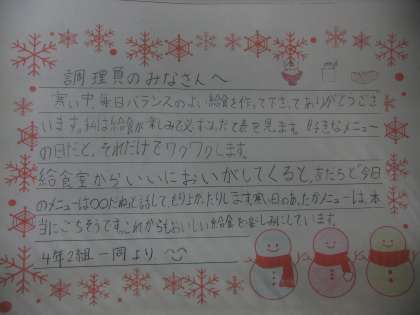 調理員のみなさんへ
寒い中、毎日バランスのよい給食を作って下さってありがとうござ
います。私は給食が楽しみで必ずこんだて表を見ます。好きなメニュー
の日だと、それだけでワクワクします。
給食室からいいにおいがしてくると、友だちと「今日
のメニューは〇〇だね」と話してもり上がったりします。寒い日のあたたかメニューは、本
当にごちそうです。これからもおいしい給食を楽しみにしています。
4年2組 一同より